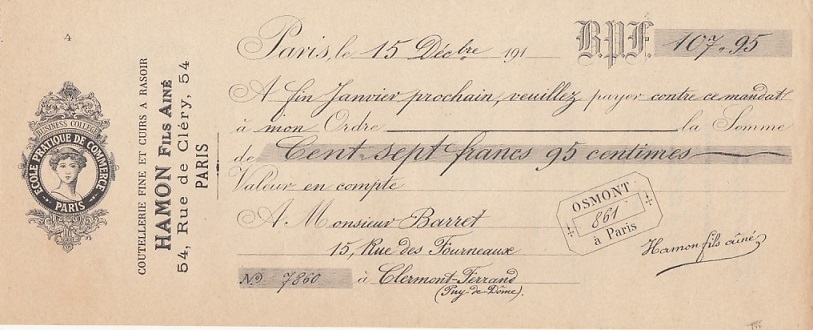 4
BUSINESS COLLEGE
ECOLE PRATIQUE DE COMMERCE
PARIS
COUTELLERIE FINE ET CUIRS A RASOIR
HAMON FILS AINÉ
54, Rue de Cléry, 54
PARIS
Paris, le 15 Décbre 191 B.P.F. 107.95
A fin Janvier prochain, veuillez payer contre ce mandat
à mon Ordre la Somme
de Cent sept francs 95 centimes
Valeur en compte
A Monsieur Barret
15, Rue des Fourneaux
No 7860 à Clermont-Ferrand
(Puy-de-Dôme).
OSMONT
861
à Paris
Hamon fils aîné